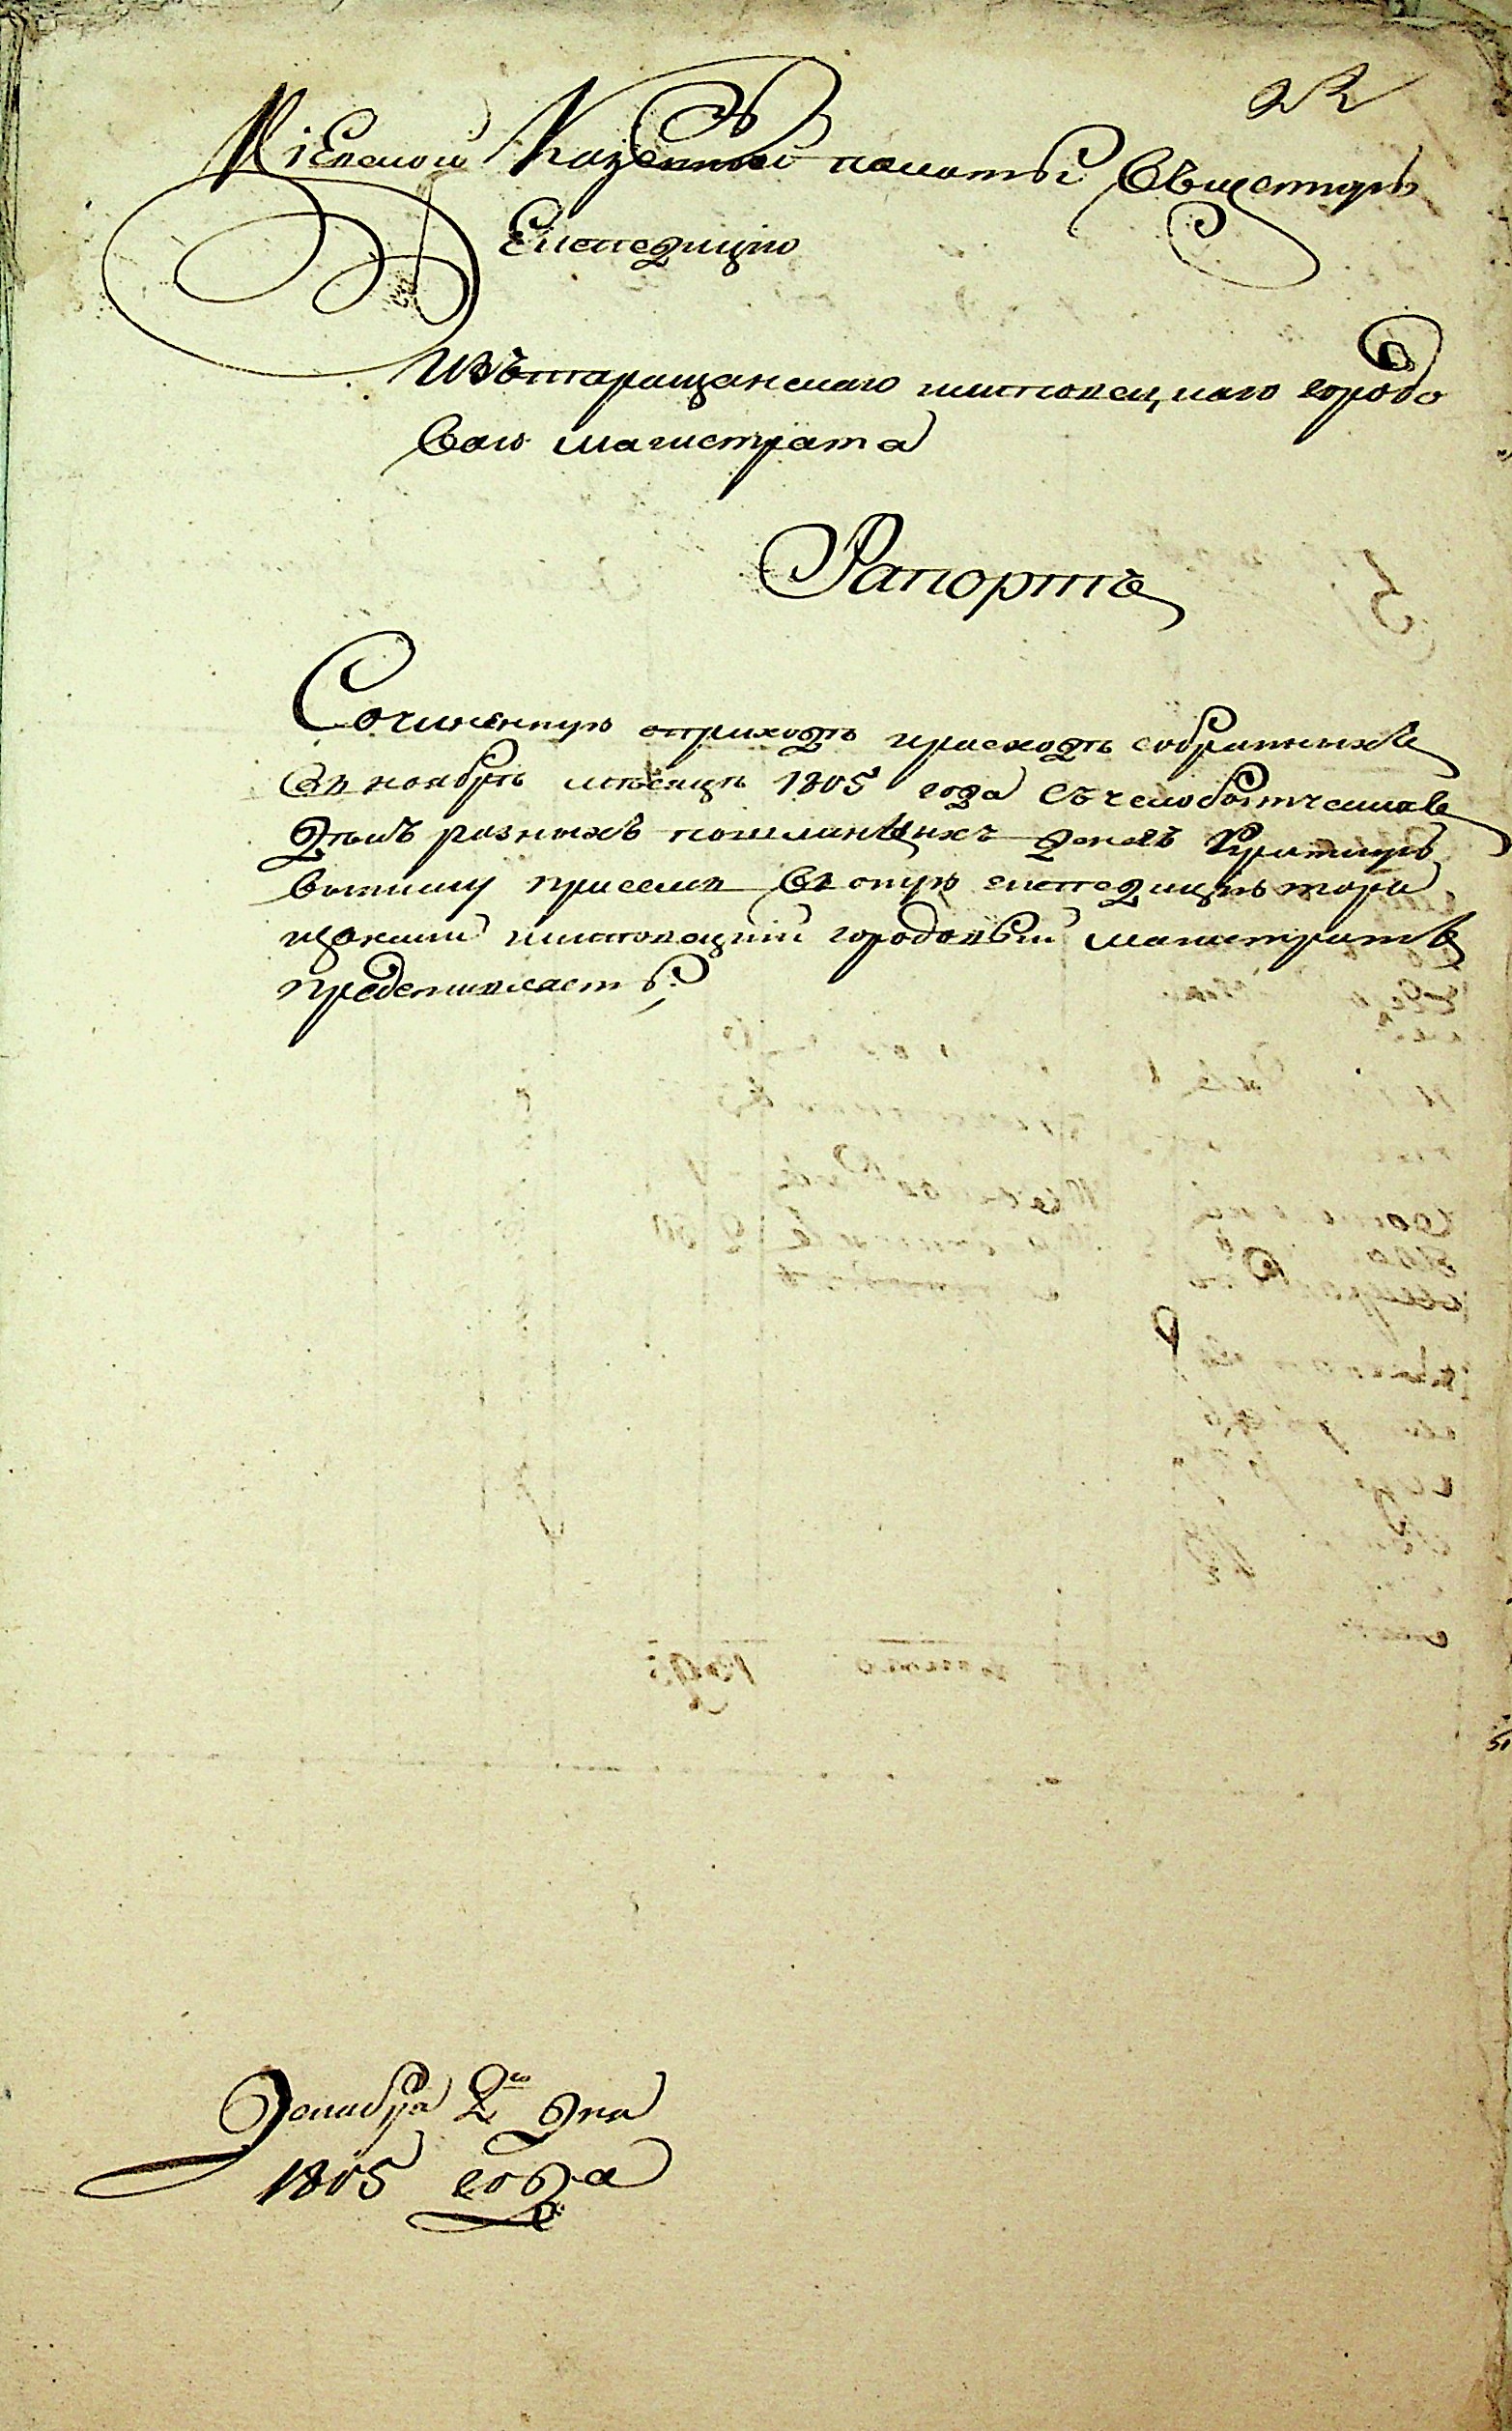 22
Кіевской Казенной палаты Въ щетную
Експедицію
Изъ таращанскаго шляховецкаго городо
ваго магистрата
Рапортъ
Сочиненную оприходѣ ирасходѣ собранныхъ
въ ноябрѣ мѣсяцѣ 1805 года съ челобитческихъ
дѣлъ разныхъ пошлинныхъ денегъ Краткую
выписку присемъ въ оную експедицію тара
щанский городовый магистратъ
представляетъ
Декабря 2го дня
1805 года